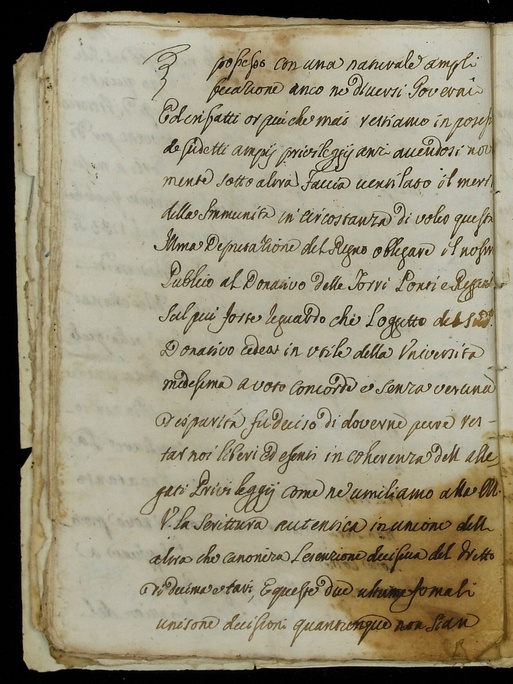 possesso con una naturale ampli
ficazione anco ne diversi Governi
Ed infatti or più che mai restiamo in posess
de sudetti ampij privileggij anzi avendosi nov
mente sotto altra faccia ventilato il meri
della Immunità in circostanza di voler questa
Illma Deputazione del Regno obligare il nostro
Publico al Donativo delle Torri Ponti e Reggi
sul più forte riguardo che l'oggetto del Sud.o
Donativo cedea in utile della Università
medesima a voto concorde e senza veruna
disparità fu deciso di doverne pure res-
tar noi liberi ed esenti in coerenza dell alle
gati Privileggij come ne umiliamo alla
V. la Scrittura autentica in unione dell
altra che canoniza l'esenzione decisiva del dritto
di Decima e tarì. E queste due ultime formali
unisone decisioni quantunque non sian